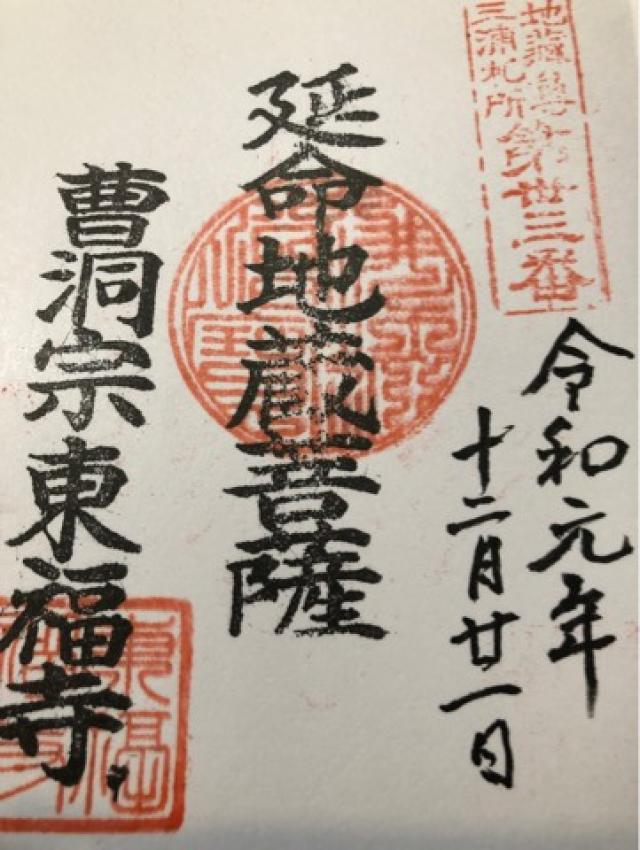 地蔵尊
三浦札所
第丗三番
令和元年
十二月廿一日
延命地蔵菩薩
曹洞宗東福寺
東福